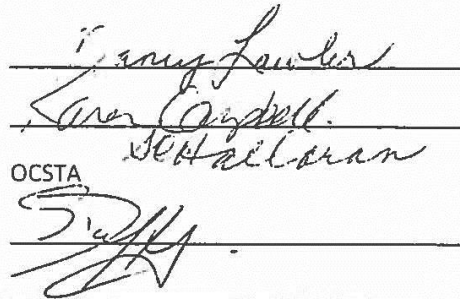 Nancy Lawler
Karen Campbell.
O'Halloran
OCSTA